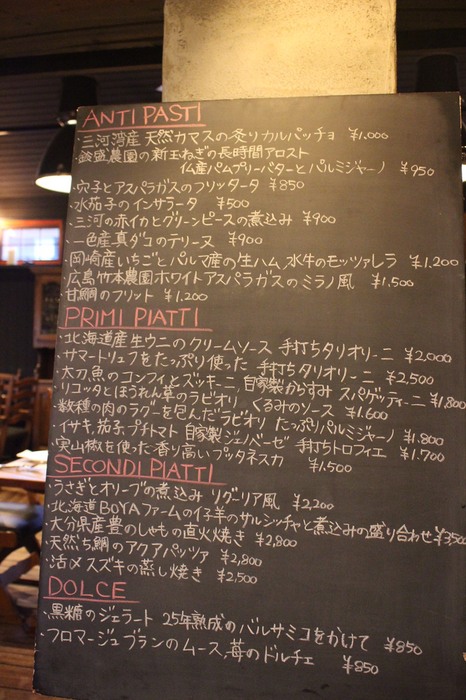 ANTI PASTI
・三河湾産 天然カマスの炙りカルパッチョ ¥1.000
・鈴盛農園の新玉ねぎの長時間アロスト
仏産パムプリーバターとパルミジャーノ ¥950
・穴子とアスパラガスのフリッタータ ¥850
・水茄子のインサラータ ¥500
・三河の赤イカとグリーンピースの煮込み ¥900
・一色産真ダコのテリーヌ ¥900
・岡崎産いちごとパルマ産の生ハム、水牛のモッツァレラ ¥1.200
・広島竹本農園ホワイトアスパラガスのミラノ風 ¥1.500
・甘鯛のフリット ¥1.200
PRIMI PIATTI
・北海道産生ウニのクリームソース 手打ちタリオリーニ ¥2,000
・サマートリュフをたっぷり使った 手打ちタリオリーニ ¥2,500
・太刀魚のコンフィとズッキーニ 自家製からすみ スパゲッティーニ ¥1,800
・リコッタとほうれん草のラビオリ くるみのソース ¥1.600
・数種の肉のラグーを包んだラビオリ たっぷりパルミジャーノ ¥1.800
・イサキ、茄子、プチトマト 自家製ジェノベーゼ 手打ちトロフィエ ¥1.700
・実山椒を使った香り高いプッタネスカ ¥1.500
SECONDI PIATTI
・うさぎとオリーブの煮込み リグーリア風 ¥2,200
・北海道BOYAファームの仔羊のサルシッチャと煮込みの盛り合わせ ¥3,500
・大分県産豊のしゃもの直火焼き ¥2,800
・天然ち鯛のアクアパッツァ ¥2,800
・活〆スズキの蒸し焼き ¥2,500
DOLCE
・黒糖のジェラート 25年熟成のバルサミコをかけて ¥850
・フロマージュブランのムース、苺のドルチェ ¥850